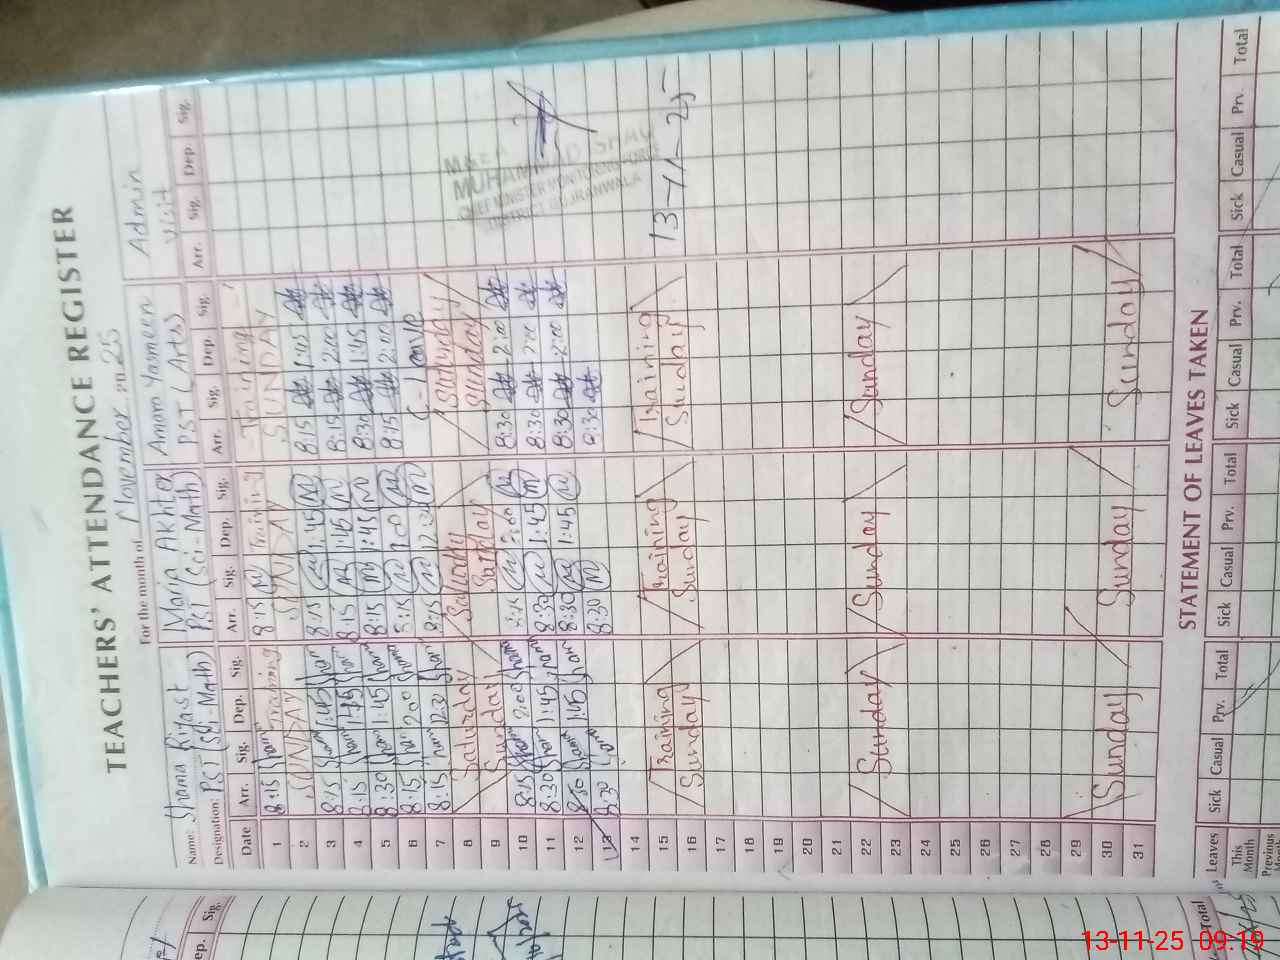 TEACHERS' ATTENDANCE REGISTER
For the month of November 2025
Name: Shama Rifast Maria Akhter Amara Yasmeen Admin
Designation: PST (Sci-Math) PST (Sci-Math) PST (Arts) Visit
Date Arr. Sig. Dep. Sig. Arr. Sig. Dep. Sig. Arr. Sig. Dep. Sig. Arr. Sig. Dep. Sig.
1 8:15 Training 8:15 Training Training
2 SUNDAY SUNDAY SUNDAY
3 8:15 1:45 8:15 1:45 8:15 1:45
4 8:15 1:45 8:15 1:45 8:15 2:00
5 8:30 1:45 8:15 1:45 8:30 1:45
6 8:15 2:00 8:15 8:15 2:00
7 8:15 12:30 8:15 12:30 C-leave
8 Saturday Saturday
9 Sunday Sunday
10 8:15 2:00 8:15 2:00 8:30 2:00
11 8:30 1:45 8:30 1:45 8:30 2:00
12 8:30 1:45 8:30 1:45 8:30 2:00
13 8:30 8:30 8:30
14
15 Training Training Training
16 Sunday Sunday Sunday
17
18
19
20
21
22
23 Sunday Sunday Sunday
24
25
26
27
28
29
30 Sunday Sunday Sunday
31
MUHAMMAD
CHIEF MINISTER MONITORING FORCE
DISTRICT GUJRANWALA
13-11-25
STATEMENT OF LEAVES TAKEN
Leaves Sick Casual Prv. Total Sick Casual Prv. Total Sick Casual Prv. Total Sick Casual Prv. Total
This Month
Previous Month
Dep. Sig.
Total
13-11-25 09:19